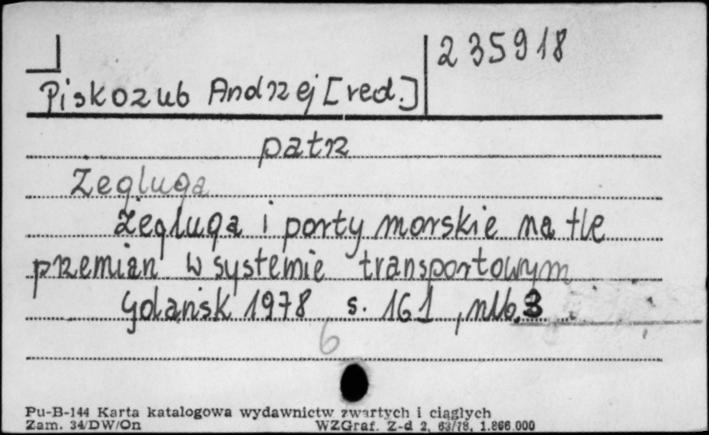 235918
Piskozub Andrzej [red.]
patrz
Żegluga
Żegluga i porty morskie na tle
przemian w systemie transportowym
Gdańsk 1978 s. 161, nlb. 3
6
Pu-B-144 Karta katalogowa wydawnictw zwartych i ciągłych
Zam. 34/DW/On WZGraf. Z-d 2, 63/78, 1.866.000